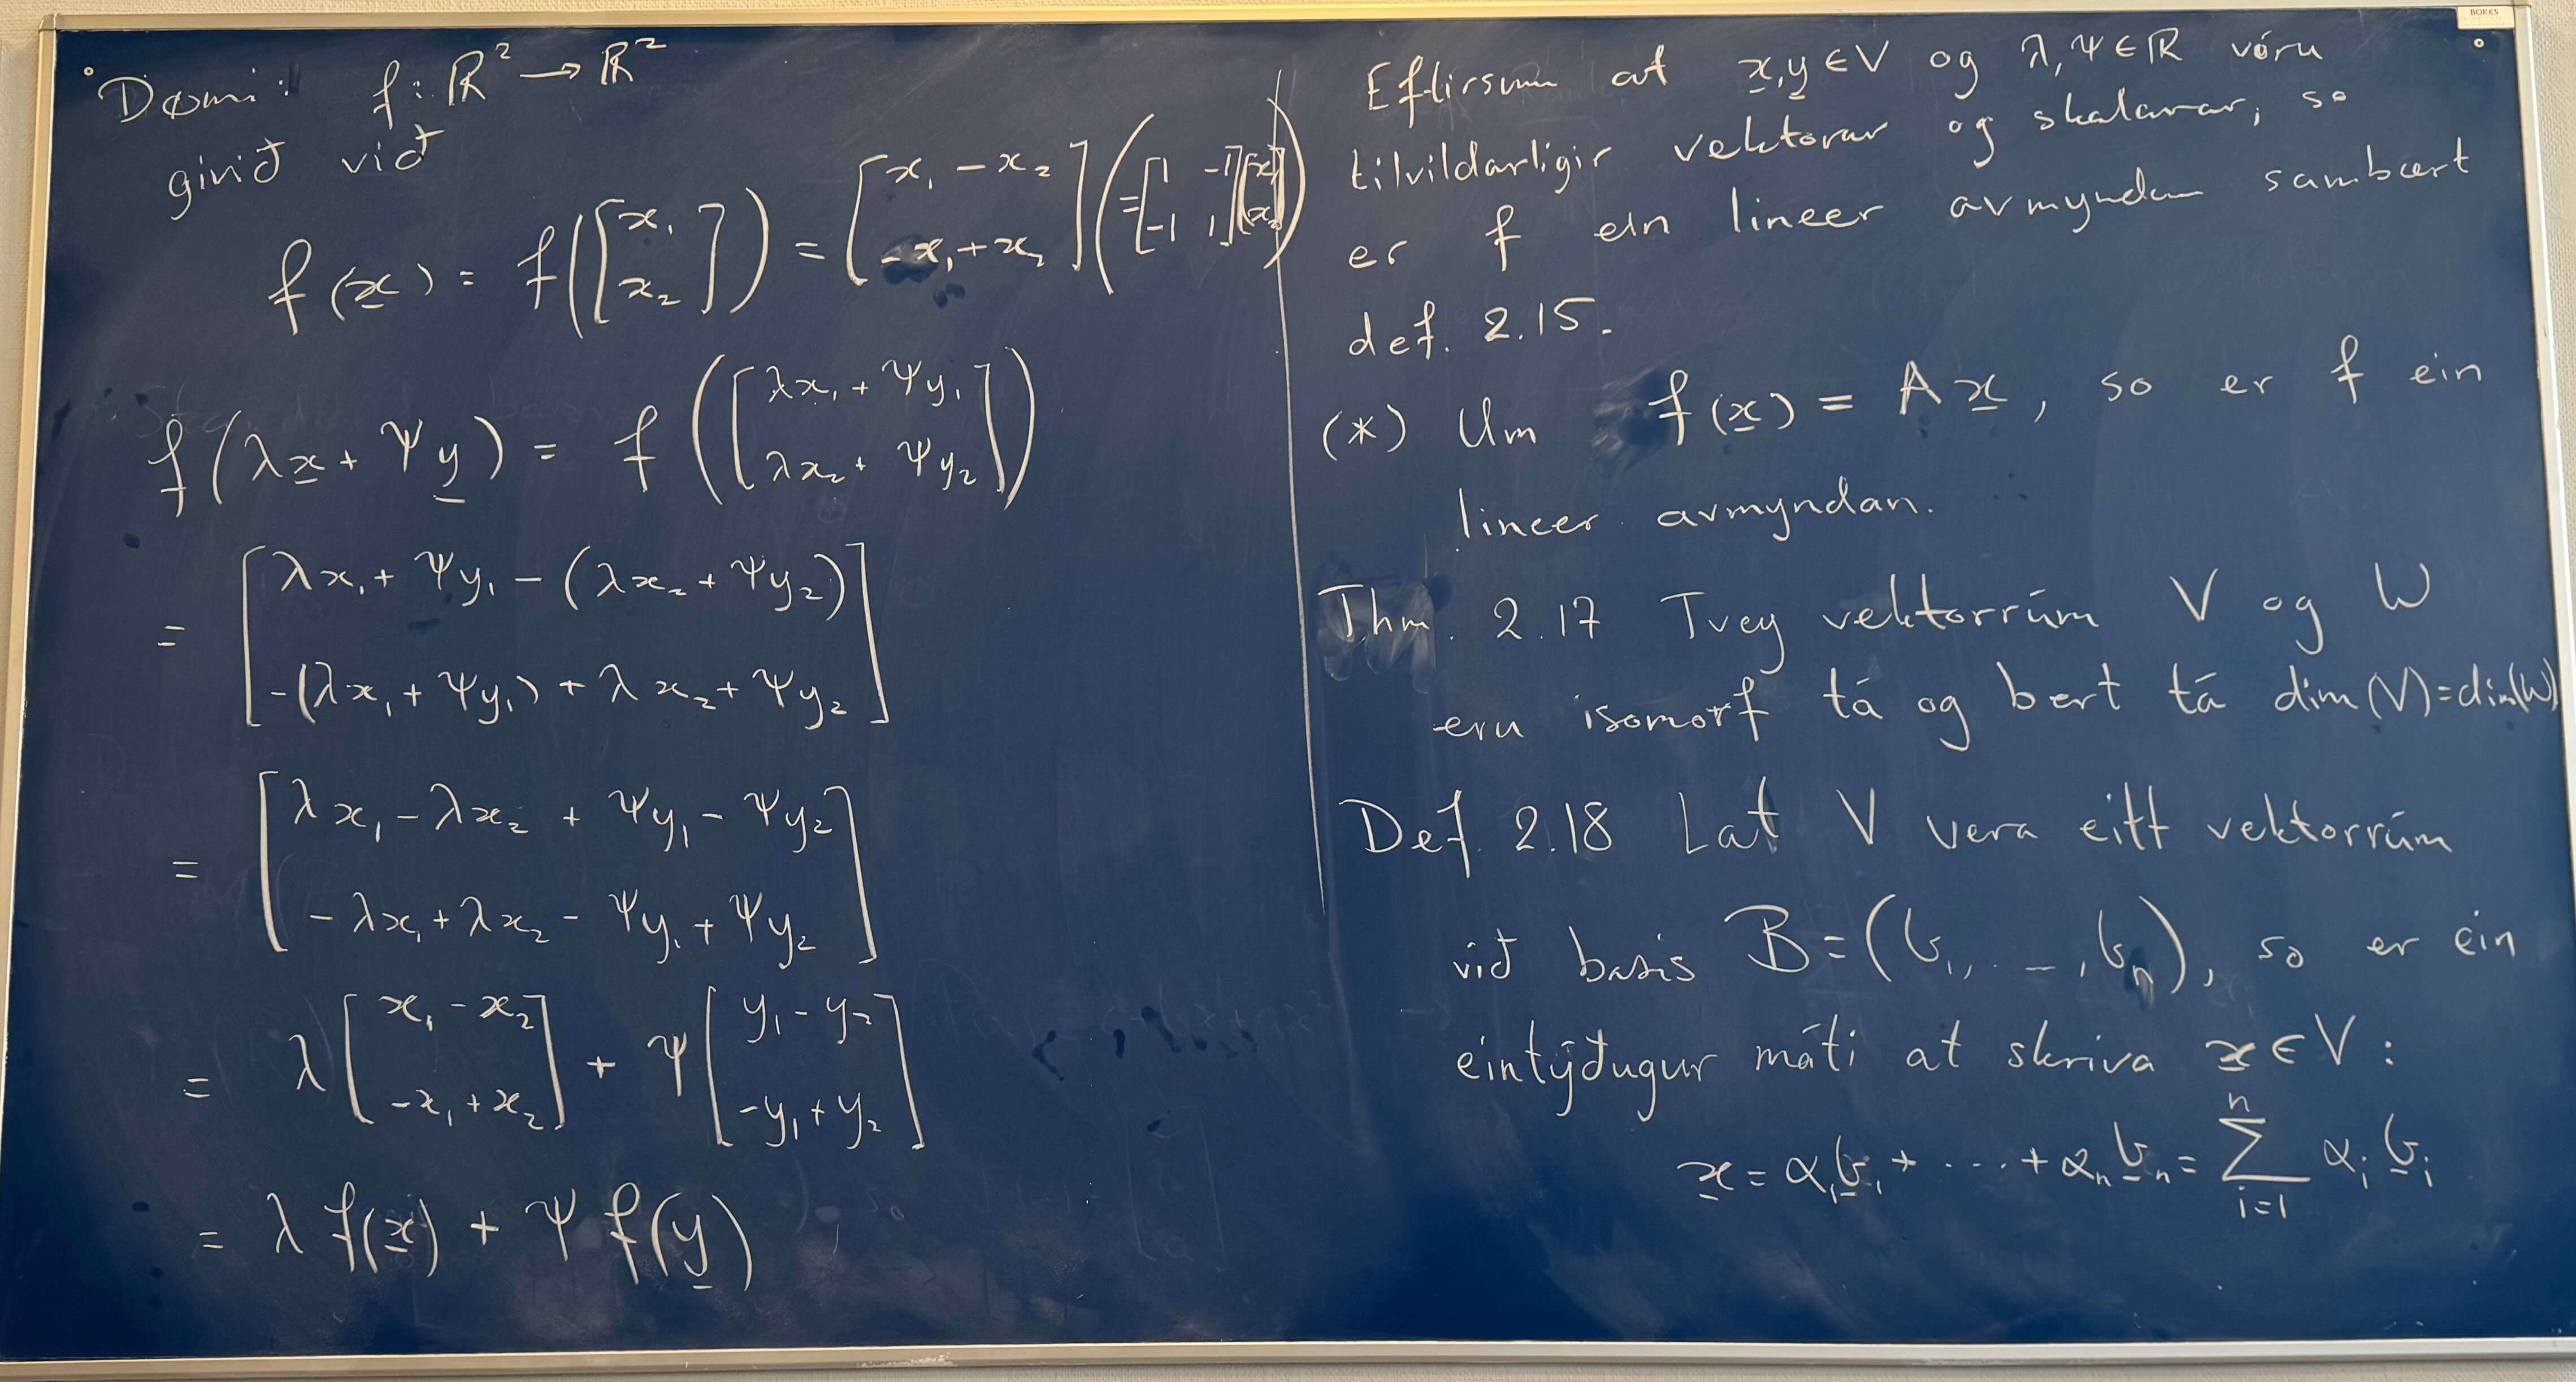 Dømi: f: ℝ² → ℝ²
givið við
f(x̲) = f([x₁ x₂]) = [x₁ - x₂ -x₁ + x₂] (= [1 -1 -1 1][x₁ x₂])
f(λx̲ + Ψy̲) = f([λx₁ + Ψy₁ λx₂ + Ψy₂])
= [λx₁ + Ψy₁ - (λx₂ + Ψy₂) -(λx₁ + Ψy₁) + λx₂ + Ψy₂]
= [λx₁ - λx₂ + Ψy₁ - Ψy₂ -λx₁ + λx₂ - Ψy₁ + Ψy₂]
= λ[x₁ - x₂ -x₁ + x₂] + Ψ[y₁ - y₂ -y₁ + y₂]
= λf(x̲) + Ψf(y̲)
Eftirsum at x̲,y̲ ∈ V og λ,Ψ ∈ ℝ vóru
tilvildarligir vektorar og skalarar, so
er f ein lineer avmyndan sambært
def. 2.15.
(*) Um f(x̲) = Ax̲, so er f ein
lineer avmyndan.
Thm. 2.17 Tvey vektorrúm V og W
eru isomorf tá og bert tá dim(V)=dim(W)
Def. 2.18 Lat V vera eitt vektorrúm
við basis B=(b₁, ..., bₙ), so er ein
eintýðugur máti at skriva x̲ ∈ V:
x̲ = α₁b̲₁ + ... + αₙb̲ₙ = ∑ⁿᵢ₌₁ αᵢb̲ᵢ
BORKS